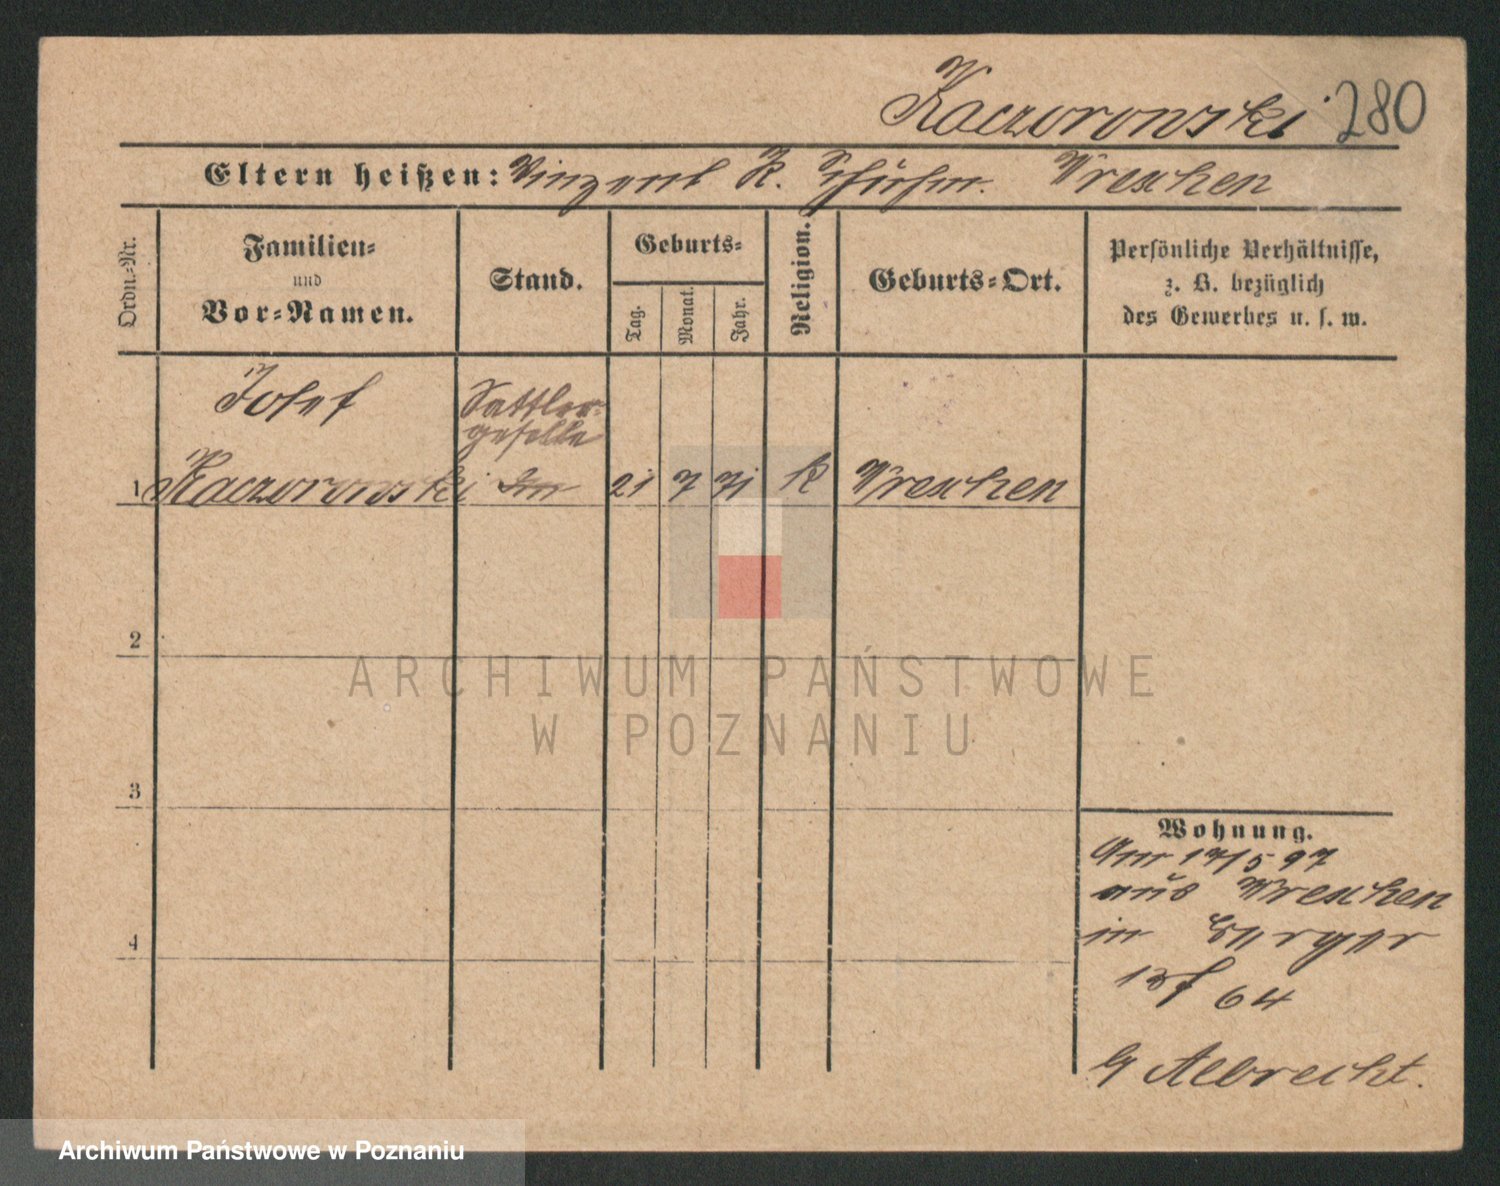 Kaczorowski 280
Eltern heißen: Vinzent K. Wreschen
Ordn.-Nr.
Familien-
und
Vor-Namen.
Stand.
Geburts-
Tag.
Monat.
Jahr.
Religion.
Geburts-Ort.
Persönliche Verhältnisse,
z. B. bezüglich
des Gewerbes u. s. w.
Josef
Sattler-
geselle
1 Kaczorowski 21 7 71 k Wreschen
2
3
4
Wohnung.
17/5 97
aus Wreschen
in
64
Albrecht.
ARCHIWUM PAŃSTWOWE
W POZNANIU
Archiwum Państwowe w Poznaniu